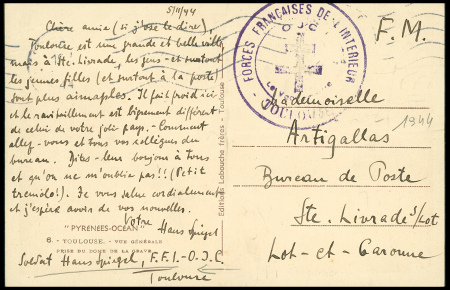 5/11/44
Chère amie (si j'ose le dire),
Toulouse est une grande et belle ville
mais à Ste. Livrade, les gens - et surtout
les jeunes filles (et surtout à la poste)
sont plus aimables. Il fait froid ici
et le ravitaillement est bigrement différent
de celui de votre joli pays. - Comment
allez-vous et tous vos collègues du
bureau. Dites-leur bonjour à tous
et qu'on ne m'oublie pas!! (Petit
tremolo!). Je vous salue cordialement
et j'espère avoir de vos nouvelles.
Votre Hans Spiegel
"PYRÉNÉES-OCÉAN"
6. - TOULOUSE. - VUE GÉNÉRALE
PRISE DU DOME DE LA GRAVE
Soldat Hans Spiegel, F.F.I.-O.J.C.
Toulouse
Editions Labouche frères - Toulouse
- FORCES FRANÇAISES DE L'INTÉRIEUR -
O.J.C.
TOULOUSE
F.M.
Mademoiselle
Artigallas
1944
Bureau de Poste
Ste. Livrade s/Lot
Lot-et-Garonne